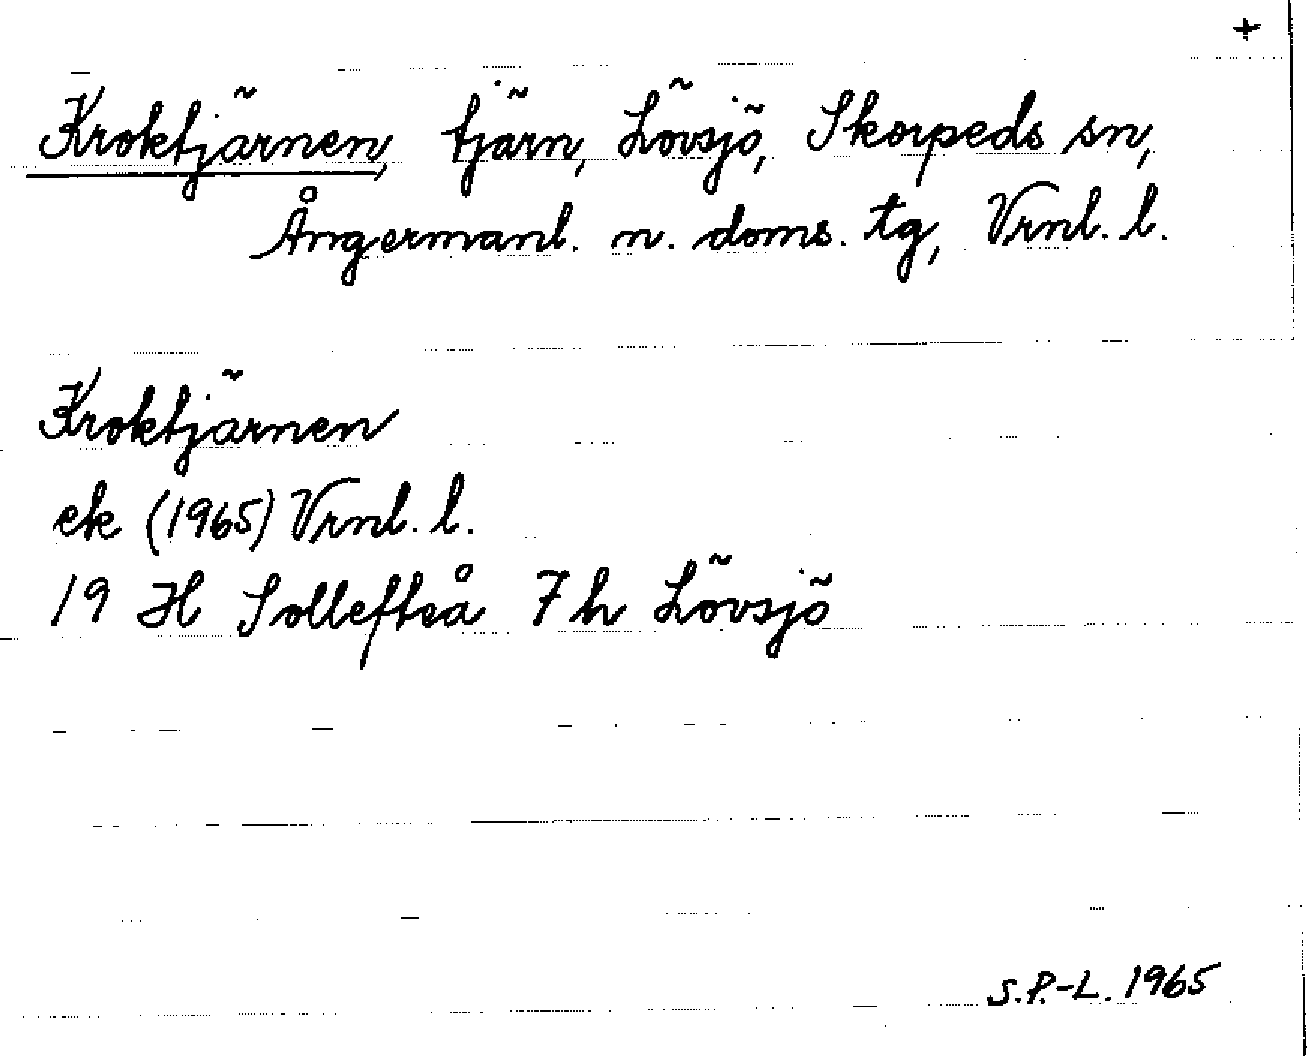 +
Kroktjärnen, tjärn, Lövsjö, Skorpeds sn,
Ångermanl. n. doms. tg, Vrnl. l.
Kroktjärnen
ek (1965) Vrnl. l.
19 H Sollefteå 7 h Lövsjö
S.P.-L. 1965